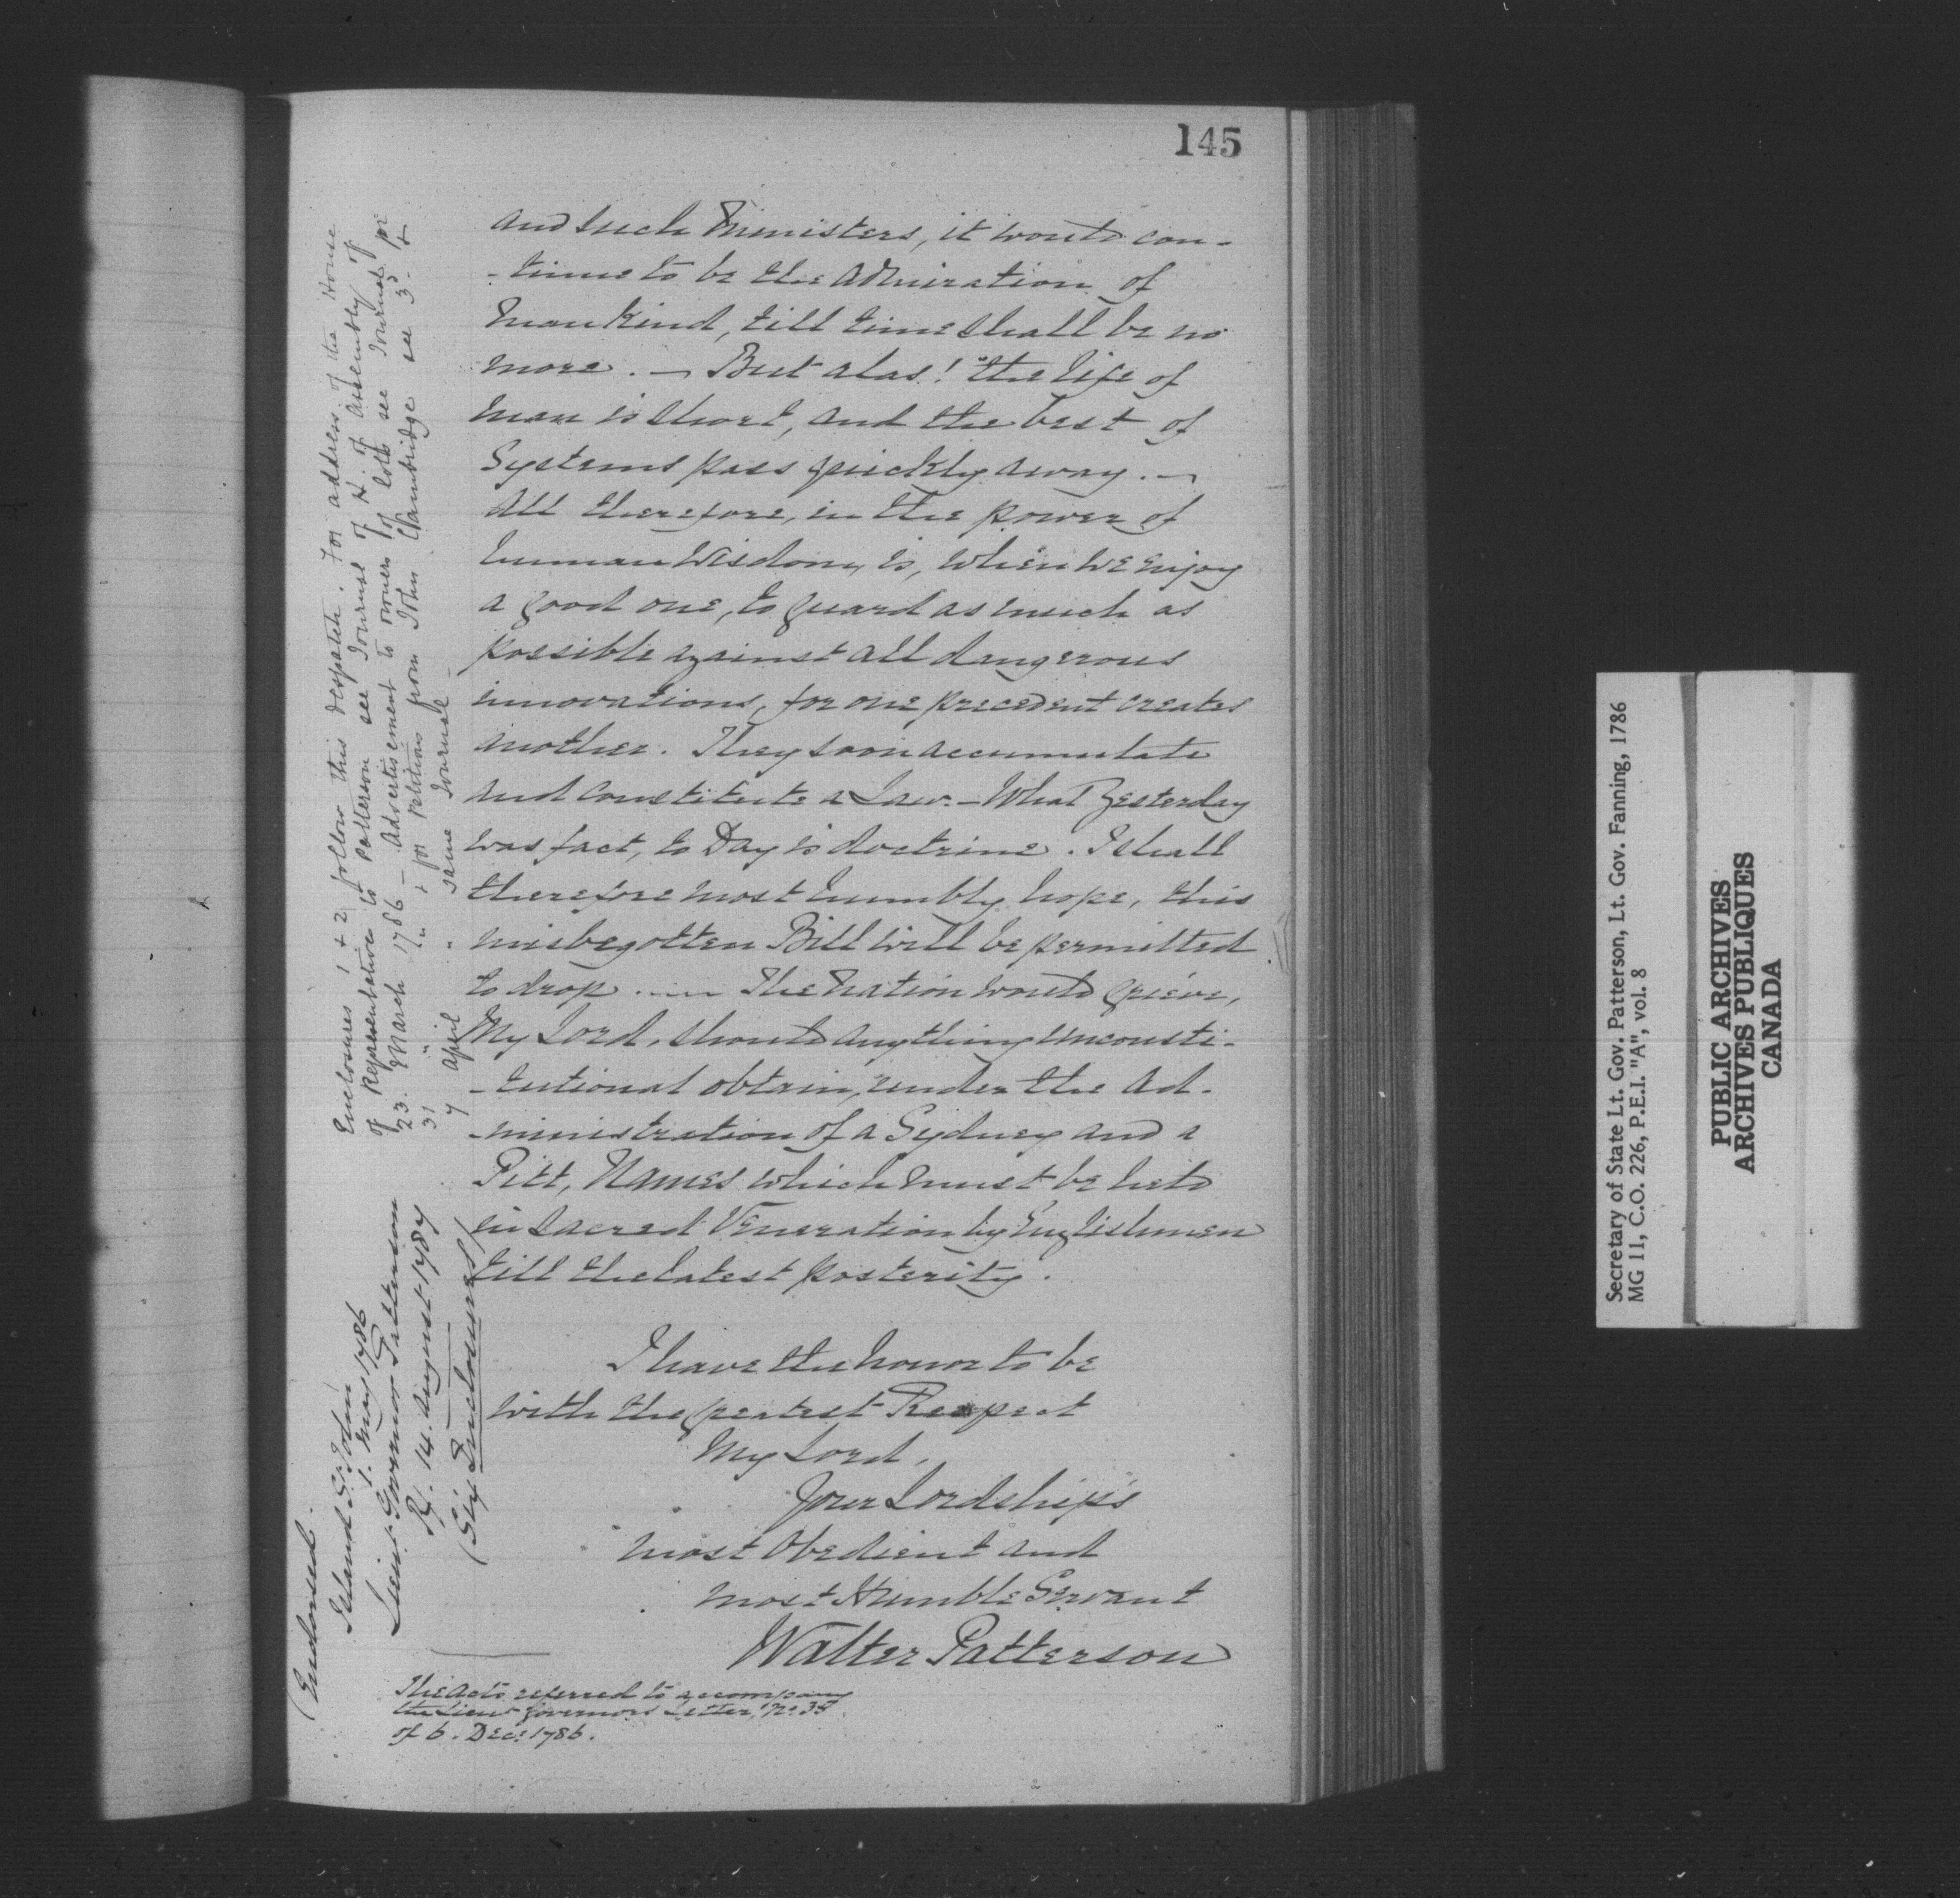 145
and such Ministers, it would con-
-tinue to be the Admiration of
Mankind, till time shall be no
more. — But alas! the life of
man is short, and the best of
Systems pass quickly away. —
All therefore, in the power of
human Wisdom, is, when we enjoy
a good one, to guard as much as
possible against all dangerous
innovations, for one precedent creates
another. They soon accumulate
and constitute a Law. — What Yesterday
was fact, to Day is doctrine. I shall
therefore most humbly hope, this
misbegotten Bill will be permitted
to drop. — The Nation would grieve,
My Lord, should anything unconsti-
-tutional obtain, under the Ad-
-ministration of a Sydney and a
Pitt, Names which must be held
in sacred Veneration by Englishmen
till the latest posterity.
I have the honor to be
with the greatest Respect
My Lord,
Your Lordship's
most Obedient and
most Humble Servant
Walter Patterson
The Acts referred to accompany
the Lieut Governors Letter, No. 35
of 6. Decr. 1786.
Enclosures 1 + 2 follow this despatch. For address of the House
of Representatives to Patterson see Journal of H. of Assembly of
23. March 1786 — Advertisement to owners of lots see Journal for
31 " " + for Petitions from John Cambridge see 3d. +
7 April same Journal —
(Endorsed.
Island St. John
1. May 1786
Lieut. Governor Patterson
R/. 14. August 1787
(Six Enclosures)
Secretary of State Lt. Gov. Patterson, Lt. Gov. Fanning, 1786
MG 11, C.O. 226, P.E.I. "A", vol. 8
PUBLIC ARCHIVES
ARCHIVES PUBLIQUES
CANADA